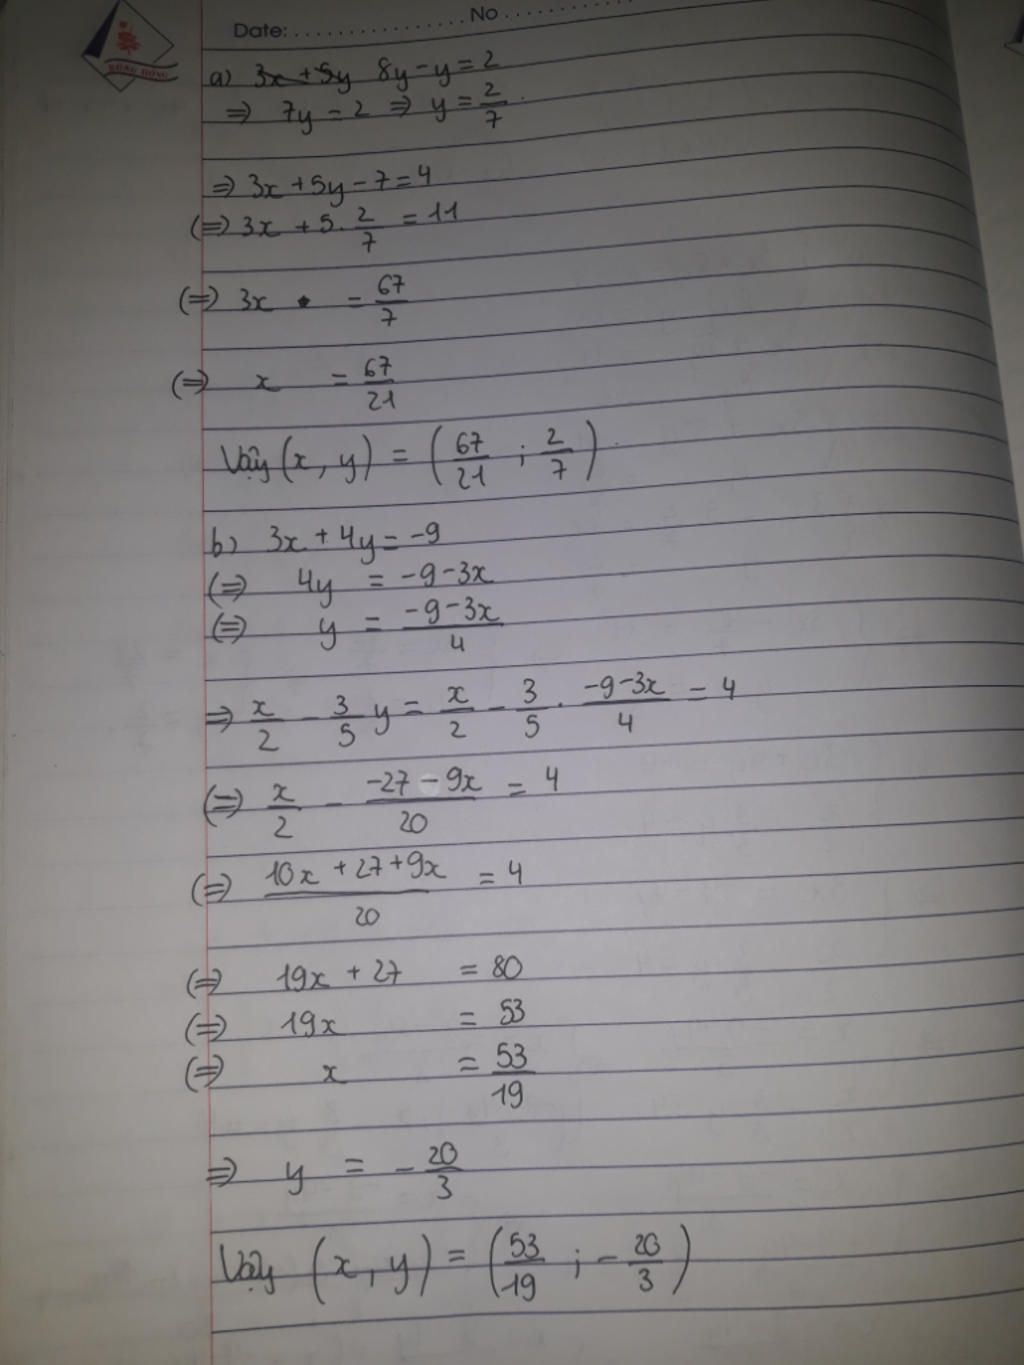 Date: ............... No ...............
HỒNG HÔNG
a) 3x + 5y 8y - y = 2
⇒ 7y = 2 ⇒ y = 2/7.
⇒ 3x + 5y - 7 = 4
(⇒) 3x + 5. 2/7 = 11
(⇒) 3x = 67/7
(⇒) x = 67/21
Vậy (x, y) = (67/21 ; 2/7).
b) 3x + 4y = -9
(⇒) 4y = -9 - 3x
(⇒) y = (-9 - 3x)/4
⇒ x/2 - 3/5 y = x/2 - 3/5 . (-9 - 3x)/4 = 4
(⇒) x/2 - (-27 - 9x)/20 = 4
(⇒) (10x + 27 + 9x)/20 = 4
(⇒) 19x + 27 = 80
(⇒) 19x = 53
(⇒) x = 53/19
⇒ y = - 20/3
Vậy (x, y) = (53/19 ; - 20/3)